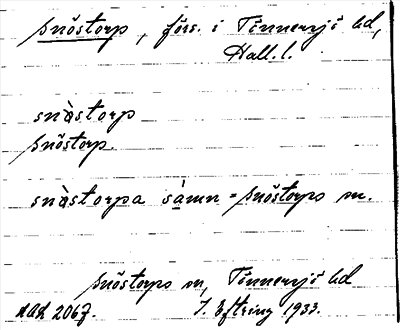 Snöstorp, förs. i Tönnersjö hd,
Hall. l.
snàstorp
Snöstorp.
snàstorpa sàmn = Snöstorps sn.
Snöstorps sn, Tönnersjö hd
2067. J. Eftring 1933.